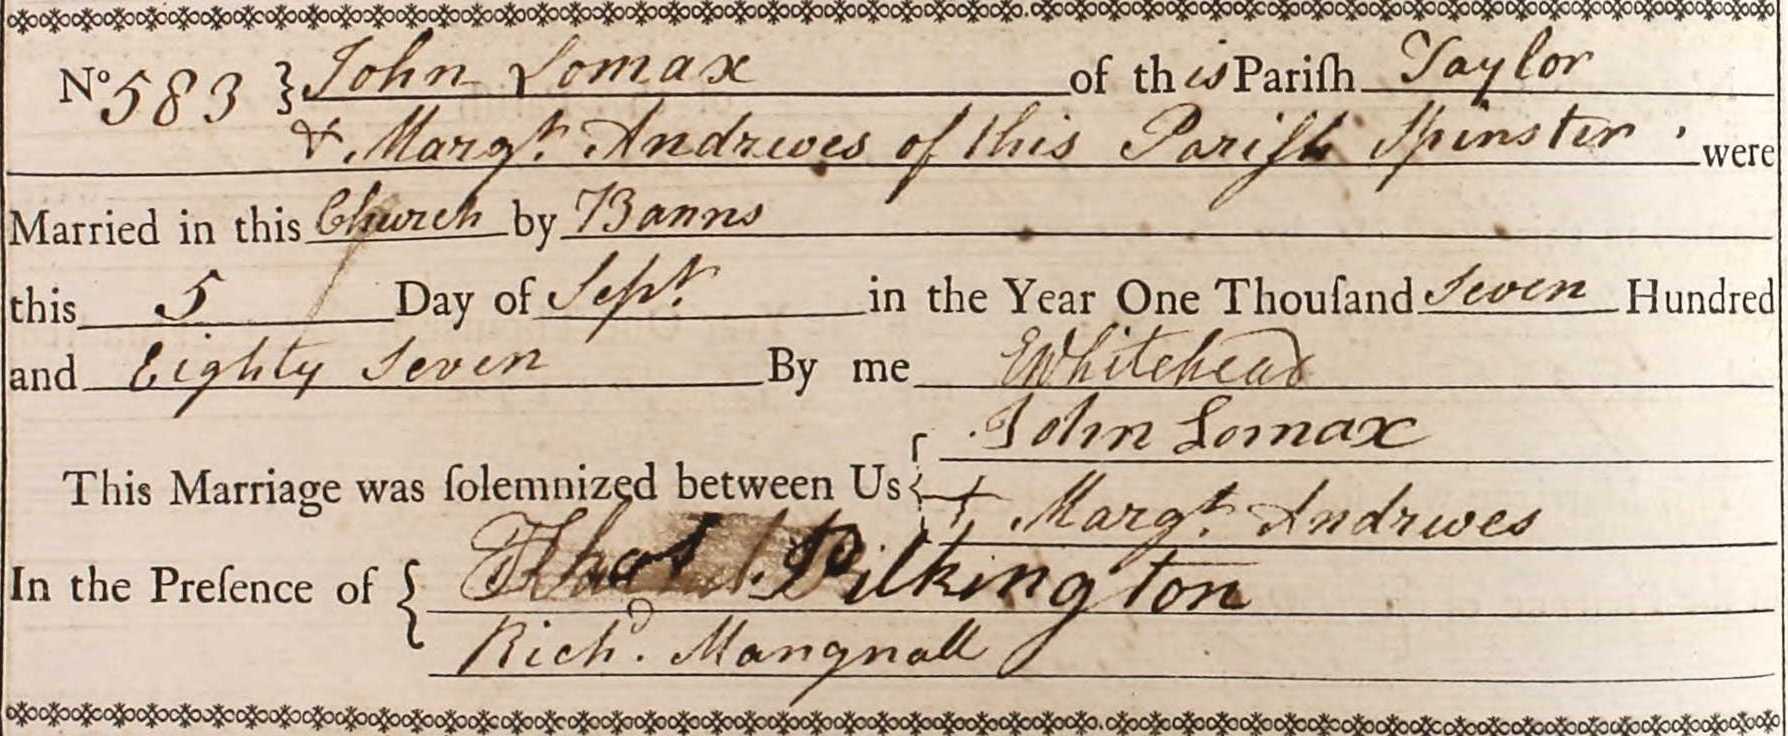 No 583 } John Lomax of this Pariſh Taylor
& Margt. Andrewes of this Pariſh Spinster . were
Married in this Church by Banns
this 5 Day of Sept. in the Year One Thouſand Seven Hundred
and Eighty Seven By me E Whitehead
John Lomax
This Marriage was ſolemnized between Us {
+ Margt. Andrewes
Thos. Pilkington
In the Preſence of {
Richd. Mangnall